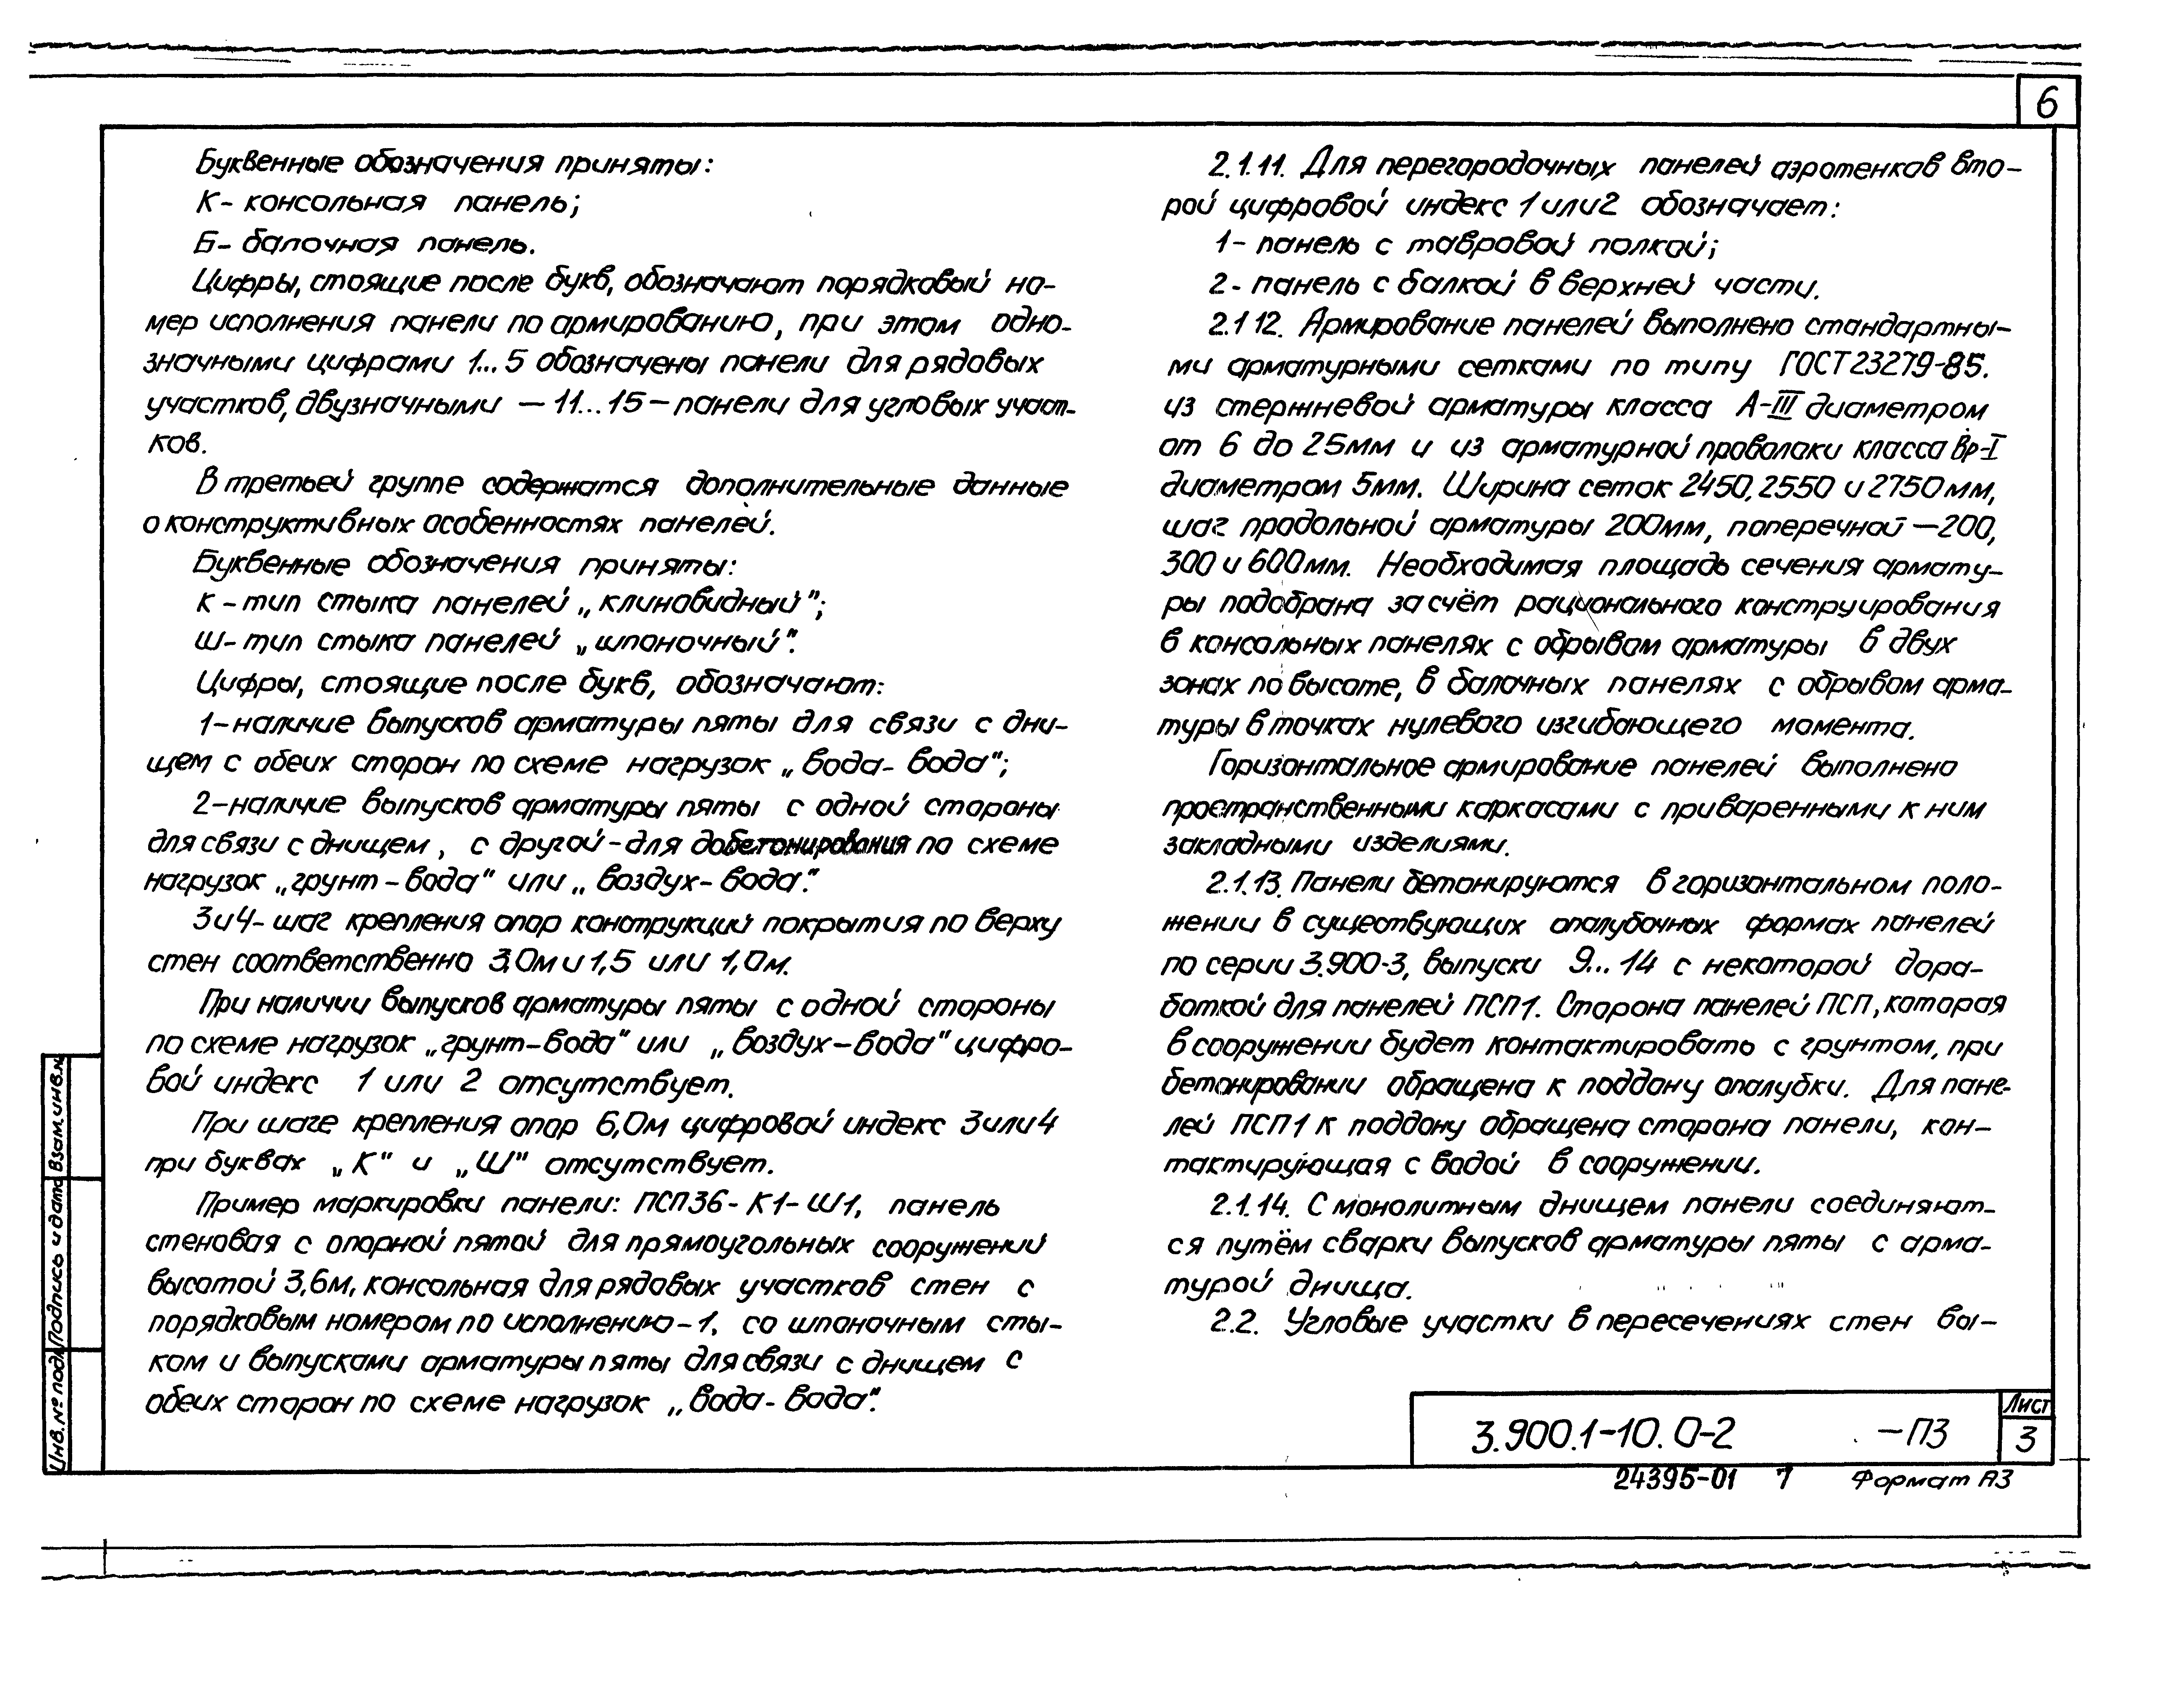 6
Буквенные обозначения приняты:
К- консольная панель;
Б- балочная панель.
Цифры, стоящие после букв, обозначают порядковый но-
мер исполнения панели по армированию, при этом одно-
значными цифрами 1...5 обозначены панели для рядовых
участков, двузначными – 11...15 – панели для угловых участ-
ков.
В третьей группе содержатся дополнительные данные
о конструктивных особенностях панелей.
Буквенные обозначения приняты:
К - тип стыка панелей „клиновидный";
Ш- тип стыка панелей „шпоночный".
Цифры, стоящие после букв, обозначают:
1-наличие выпусков арматуры пяты для связи с дни-
щем с обеих сторон по схеме нагрузок „вода- вода";
2-наличие выпусков арматуры пяты с одной стороны
для связи с днищем, с другой-для добетонирования по схеме
нагрузок „грунт-вода" или „воздух-вода".
3 и 4- шаг крепления опор конструкций покрытия по верху
стен соответственно 3,0м и 1,5 или 1,0м.
При наличии выпусков арматуры пяты с одной стороны
по схеме нагрузок „грунт-вода" или „воздух-вода" цифро-
вой индекс 1 или 2 отсутствует.
При шаге крепления опор 6,0м цифровой индекс 3 или 4
при буквах „К" и „Ш" отсутствует.
Пример маркировки панели: ПСП36-К1-Ш1, панель
стеновая с опорной пятой для прямоугольных сооружений
высотой 3,6м, консольная для рядовых участков стен с
порядковым номером по исполнению-1, со шпоночным сты-
ком и выпусками арматуры пяты для связи с днищем с
обеих сторон по схеме нагрузок „вода- вода".
2.1.11. Для перегородочных панелей аэротенков вто-
рой цифровой индекс 1 или 2 обозначает:
1- панель с тавровой полкой;
2- панель с балкой в верхней части.
2.1 12. Армирование панелей выполнено стандартны-
ми арматурными сетками по типу ГОСТ 23279-85.
из стержневой арматуры класса А-III диаметром
от 6 до 25мм и из арматурной проволоки класса Вр-I
диаметром 5мм. Ширина сеток 2450, 2550 и 2750мм,
шаг продольной арматуры 200мм, поперечной –200,
300 и 600мм. Необходимая площадь сечения армату-
ры подобрана за счёт рационального конструирования
в консольных панелях с обрывом арматуры в двух
зонах по высоте, в балочных панелях с обрывом арма-
туры в точках нулевого изгибающего момента.
Горизонтальное армирование панелей выполнено
пространственными каркасами с приваренными к ним
закладными изделиями.
2.1.13. Панели бетонируются в горизонтальном поло-
жении в существующих опалубочных формах панелей
по серии 3.900-3, выпуски 9...14 с некоторой дора-
боткой для панелей ПСП1. Сторона панелей ПСП, которая
в сооружении будет контактировать с грунтом, при
бетонировании обращена к поддону опалубки. Для пане-
лей ПСП1 к поддону обращена сторона панели, кон-
тактирующая с водой в сооружении.
2.1.14. С монолитным днищем панели соединяют-
ся путём сварки выпусков арматуры пяты с арма-
турой днища.
2.2. Угловые участки в пересечениях стен вы-
Инв.№ подл
Подпись и дата
Взам.инв.№
3.900.1-10. 0-2 -ПЗ
Лист
3
24395-01 7 Формат А3